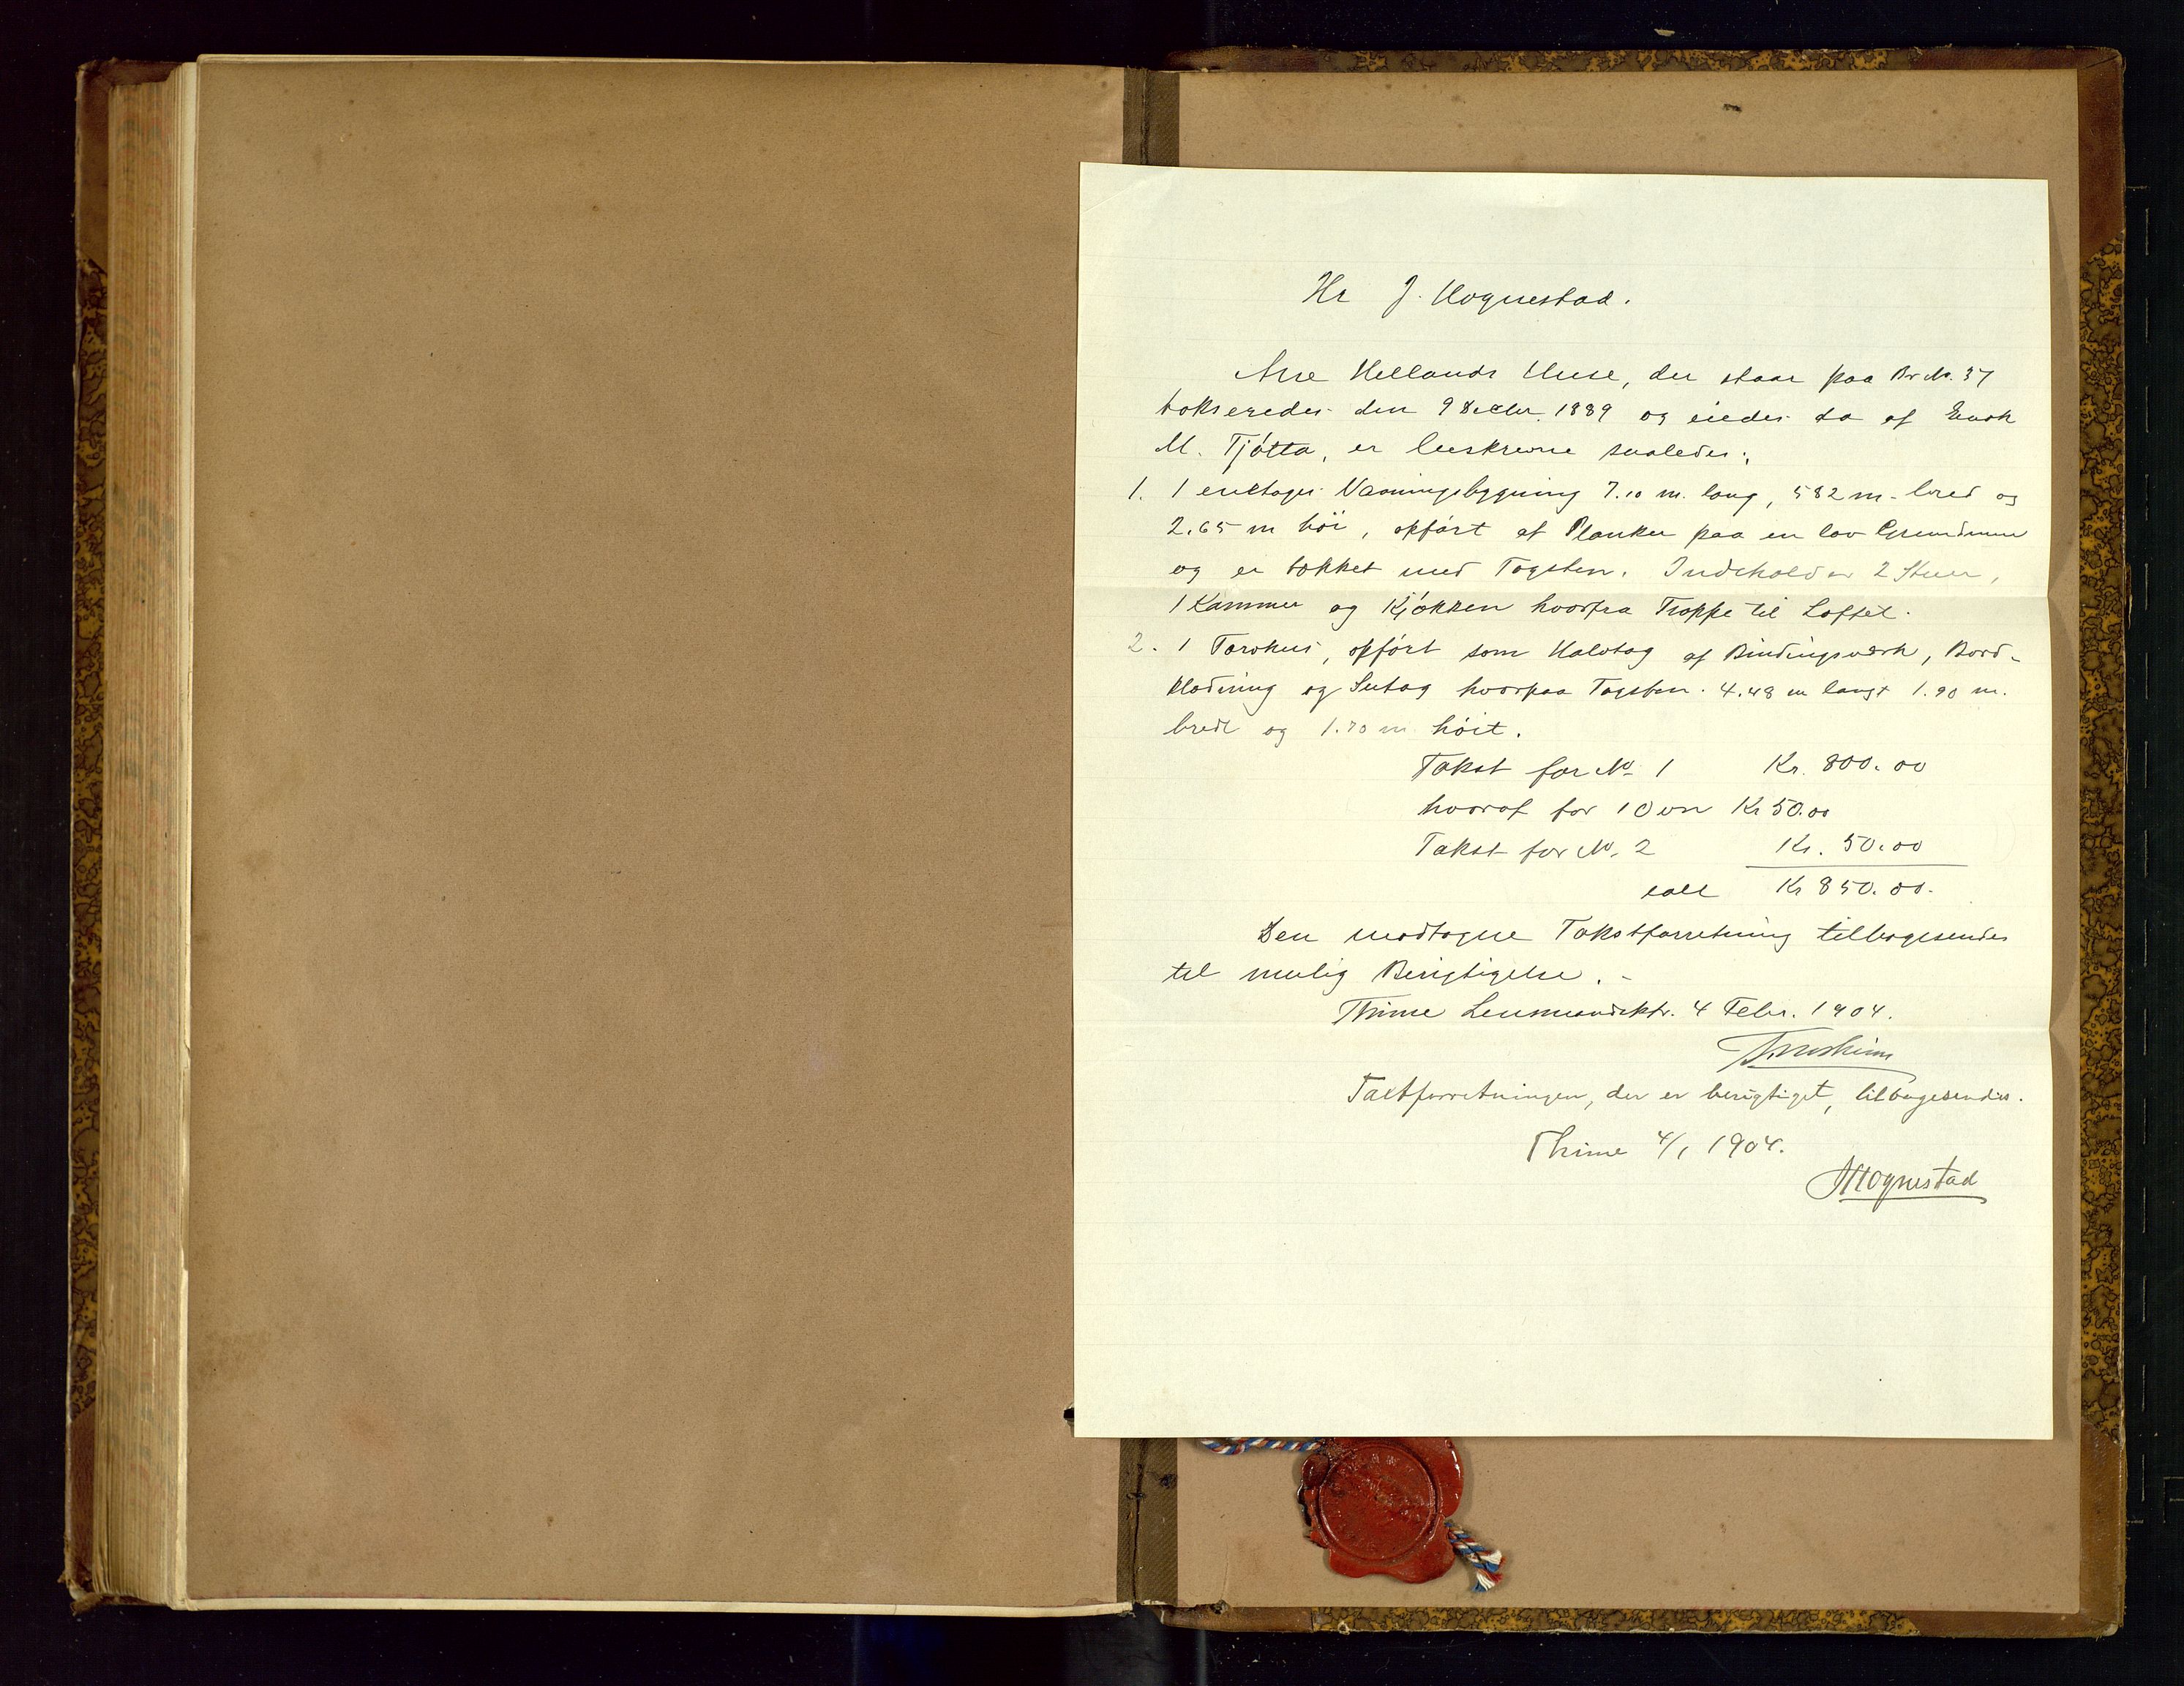 Hr J. Hognestad.
Arne Hellands Huse, der staar paa Br. No. 37
takseredes den 9 Decbr. 1889 og eiedes da af Enok
M. Tjötta, er beskrevne saaledes:
1. 1 enetages Vaaningsbygning 7.10 m. lang, 582 m. bred og
2.65 m höi, opfört af Planker paa en lav Grundmur
og er tækket med Tagsten. Indeholder 2 Stuer,
1 Kammer og Kjökken hvorfra Trappe til Loftet.
2. 1 Torvhus, opfört som Halvtag af Bindingsværk, Bord-
klædning og Sutag hvorpaa Tagsten. 4.48 m langt 1.90 m.
bredt og 1.70 m höit.
Takst for No. 1 Kr. 800.00
hvoraf for 1 Ovn Kr 50.00
Takst for No. 2 Kr. 50.00
ialt Kr 850.00.
Den modtagne Takstforretning tilbagesendes
til mulig Berigtigelse.-
Thime Lensmandsktr. 4 Febr. 1904.
Taxtforretningen, der er berigtiget, tilbagesendes.
Thime 4/1 1904.
J Hognestad